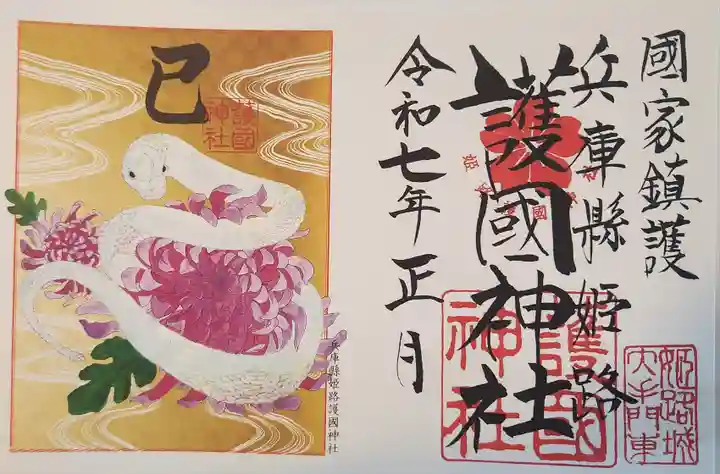 國家鎮護
兵庫縣姫路
護國神社
令和七年正月
姫路城
大手門東
護國
神社
巳
護國
神社
兵庫縣姫路護國神社